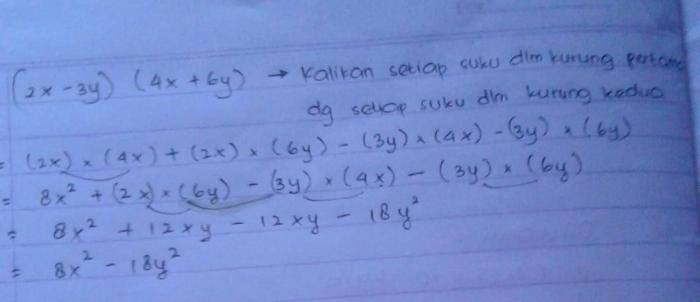 (2x - 3y) (4x + 6y) → Kalikan setiap suku dlm kurung pertama
dg setiap suku dlm kurung kedua
= (2x) × (4x) + (2x) × (6y) - (3y) × (4x) - (3y) × (6y)
= 8x² + (2x) × (6y) - (3y) × (4x) - (3y) × (6y)
= 8x² + 12xy - 12xy - 18y²
= 8x² - 18y²